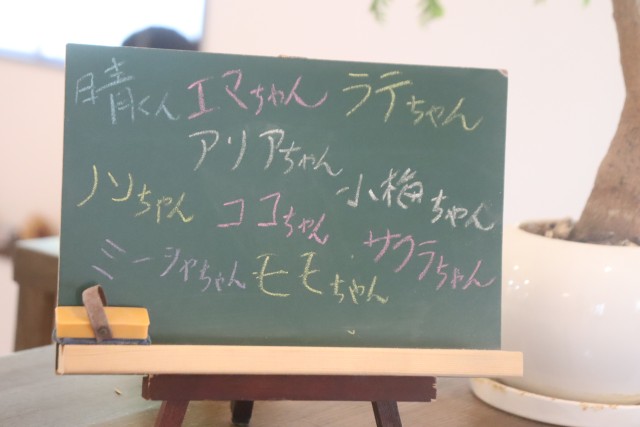 晴くん エマちゃん ラテちゃん
アリアちゃん
ノンちゃん ココちゃん 小梅ちゃん
ミーシャちゃん モモちゃん サクラちゃん